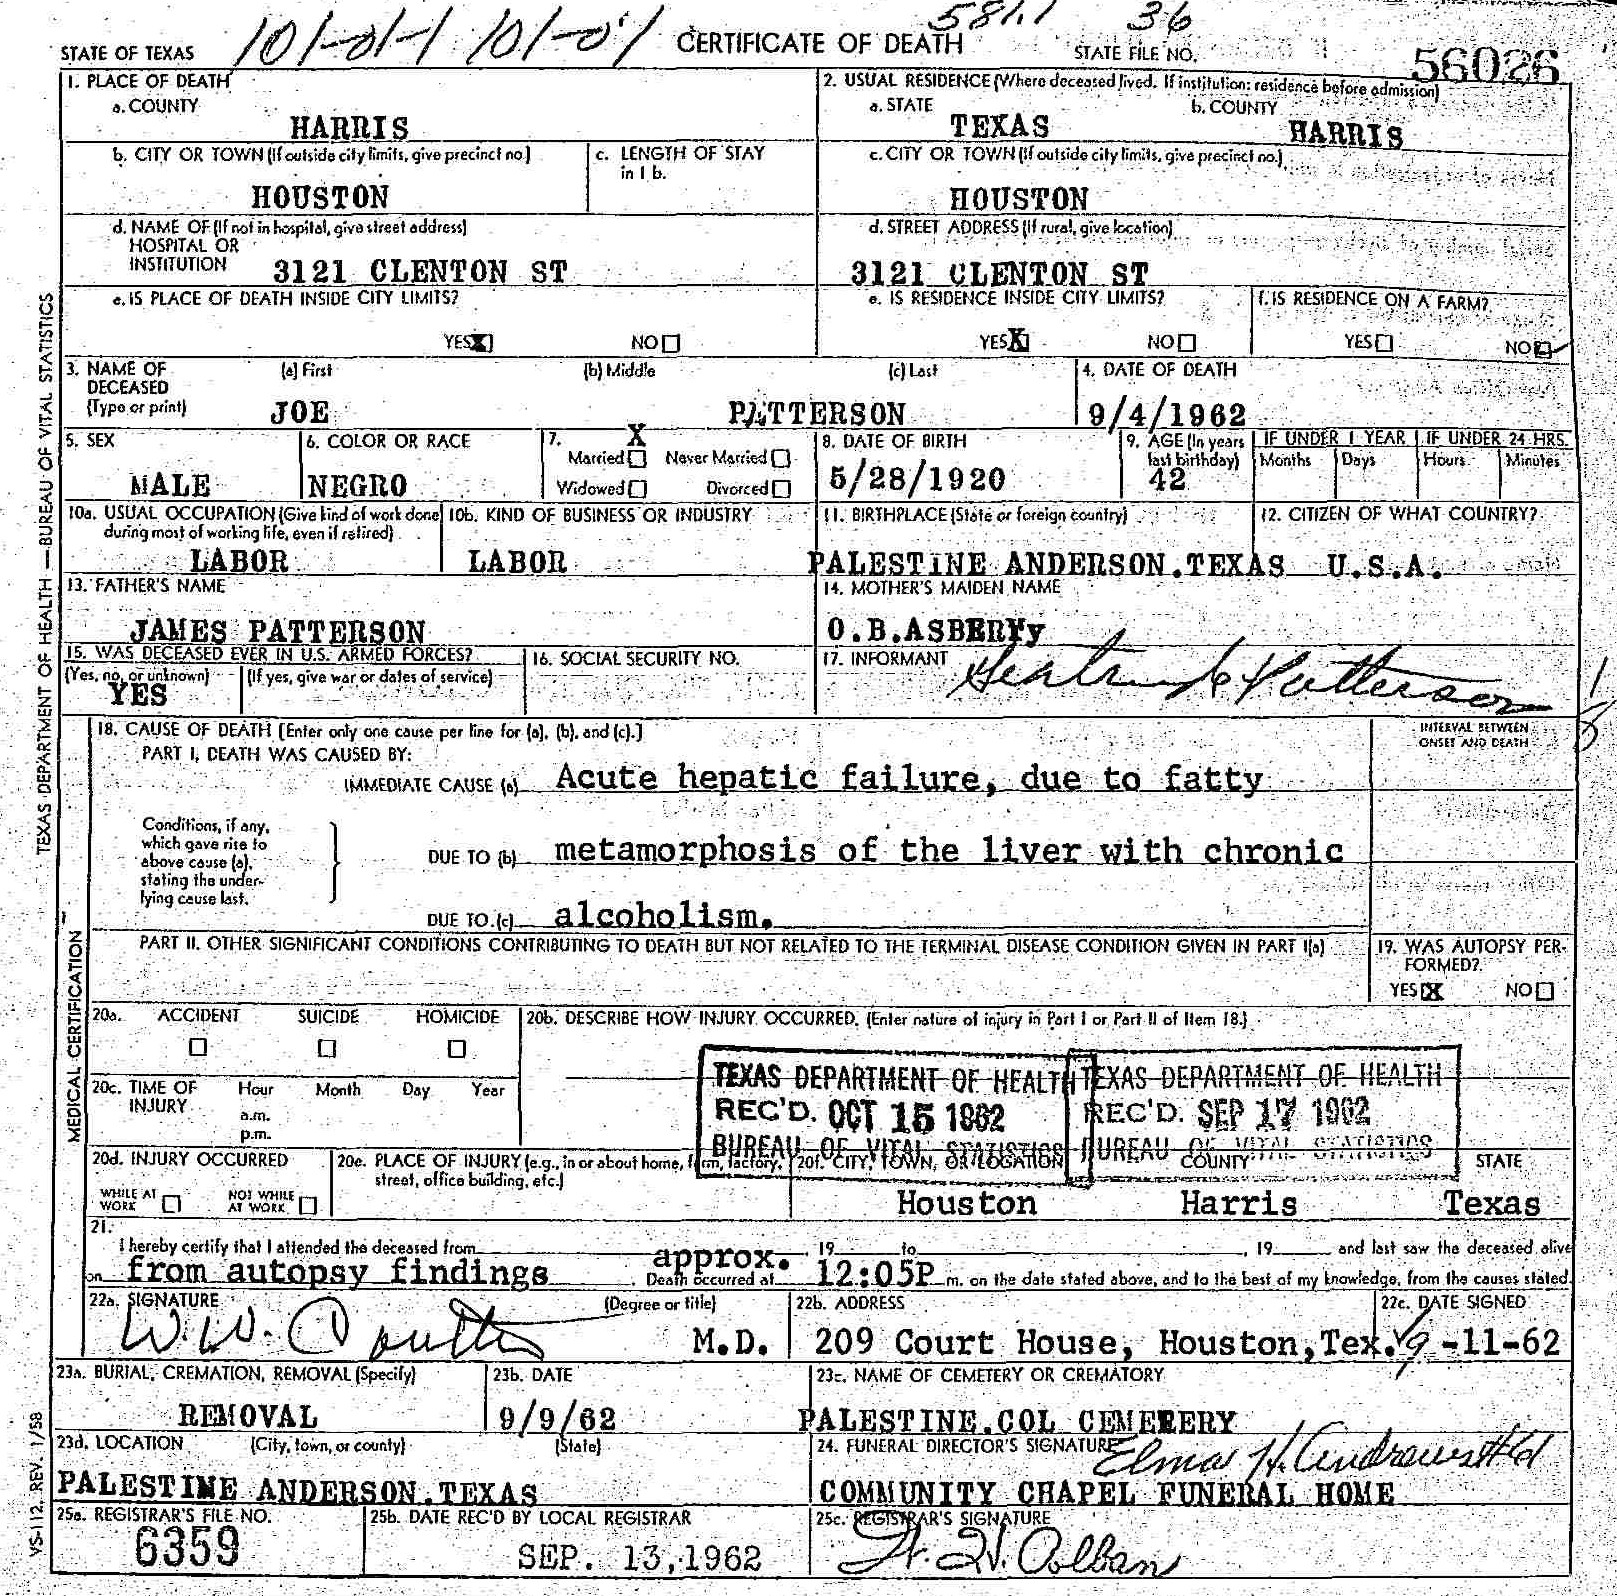 581.1 36
STATE OF TEXAS 101-01-1 101-01 CERTIFICATE OF DEATH STATE FILE NO. 56026
1. PLACE OF DEATH
a. COUNTY
HARRIS
2. USUAL RESIDENCE (Where deceased lived. If institution: residence before admission)
a. STATE b. COUNTY
TEXAS HARRIS
b. CITY OR TOWN (If outside city limits, give precinct no.)
HOUSTON
c. LENGTH OF STAY
in 1 b.
c. CITY OR TOWN (If outside city limits, give precinct no.)
HOUSTON
d. NAME OF (If not in hospital, give street address)
HOSPITAL OR
INSTITUTION 3121 CLENTON ST
d. STREET ADDRESS (If rural, give location)
3121 CLENTON ST
e. IS PLACE OF DEATH INSIDE CITY LIMITS?
YES X NO
e. IS RESIDENCE INSIDE CITY LIMITS?
YES X NO
f. IS RESIDENCE ON A FARM?
YES NO
3. NAME OF (a) First (b) Middle (c) Last
DECEASED
(Type or print) JOE PATTERSON
4. DATE OF DEATH
9/4/1962
5. SEX
MALE
6. COLOR OR RACE
NEGRO
7. X
Married Never Married
Widowed Divorced
8. DATE OF BIRTH
5/28/1920
9. AGE (In years
last birthday)
42
IF UNDER 1 YEAR IF UNDER 24 HRS.
Months Days Hours Minutes
10a. USUAL OCCUPATION (Give kind of work done
during most of working life, even if retired)
LABOR
10b. KIND OF BUSINESS OR INDUSTRY
LABOR
11. BIRTHPLACE (State or foreign country)
PALESTINE ANDERSON.TEXAS
12. CITIZEN OF WHAT COUNTRY?
U.S.A.
13. FATHER'S NAME
JAMES PATTERSON
14. MOTHER'S MAIDEN NAME
O.B.ASBERRy
15. WAS DECEASED EVER IN U.S. ARMED FORCES?
(Yes, no, or unknown) (If yes, give war or dates of service)
YES
16. SOCIAL SECURITY NO.
17. INFORMANT Gertrude Patterson
18. CAUSE OF DEATH [Enter only one cause per line for (a), (b), and (c).]
INTERVAL BETWEEN
ONSET AND DEATH
PART I. DEATH WAS CAUSED BY:
IMMEDIATE CAUSE (a) Acute hepatic failure, due to fatty
Conditions, if any,
which gave rise to
above cause (a),
stating the under-
lying cause last.
DUE TO (b) metamorphosis of the liver with chronic
DUE TO (c) alcoholism.
PART II. OTHER SIGNIFICANT CONDITIONS CONTRIBUTING TO DEATH BUT NOT RELATED TO THE TERMINAL DISEASE CONDITION GIVEN IN PART I(a)
19. WAS AUTOPSY PER-
FORMED?
YES X NO
20a. ACCIDENT SUICIDE HOMICIDE
20b. DESCRIBE HOW INJURY OCCURRED. (Enter nature of injury in Part I or Part II of Item 18.)
20c. TIME OF Hour Month Day Year
INJURY a.m.
p.m.
TEXAS DEPARTMENT OF HEALTH
REC'D. OCT 15 1962
BUREAU OF VITAL STATISTICS
TEXAS DEPARTMENT OF HEALTH
REC'D. SEP 17 1962
BUREAU OF VITAL STATISTICS
20d. INJURY OCCURRED
WHILE AT WORK NOT WHILE AT WORK
20e. PLACE OF INJURY (e.g., in or about home, farm, factory,
street, office building, etc.)
20f. CITY, TOWN, OR LOCATION COUNTY STATE
Houston Harris Texas
21.
I hereby certify that I attended the deceased from 19 to , 19 and last saw the deceased alive
on from autopsy findings . Death occurred at approx. 12:05P m. on the date stated above, and to the best of my knowledge, from the causes stated.
22a. SIGNATURE (Degree or title)
W.W. Coulter M.D.
22b. ADDRESS
209 Court House, Houston,Tex.
22c. DATE SIGNED
9-11-62
23a. BURIAL, CREMATION, REMOVAL (Specify)
REMOVAL
23b. DATE
9/9/62
23c. NAME OF CEMETERY OR CREMATORY
PALESTINE.COL CEMEEERY
23d. LOCATION (City, town, or county) (State)
PALESTINE ANDERSON.TEXAS
24. FUNERAL DIRECTOR'S SIGNATURE Elmo H. Andrews
COMMUNITY CHAPEL FUNERAL HOME
25a. REGISTRAR'S FILE NO.
6359
25b. DATE REC'D BY LOCAL REGISTRAR
SEP. 13, 1962
25c. REGISTRAR'S SIGNATURE
TEXAS DEPARTMENT OF HEALTH — BUREAU OF VITAL STATISTICS
MEDICAL CERTIFICATION
VS-112, REV. 1/58